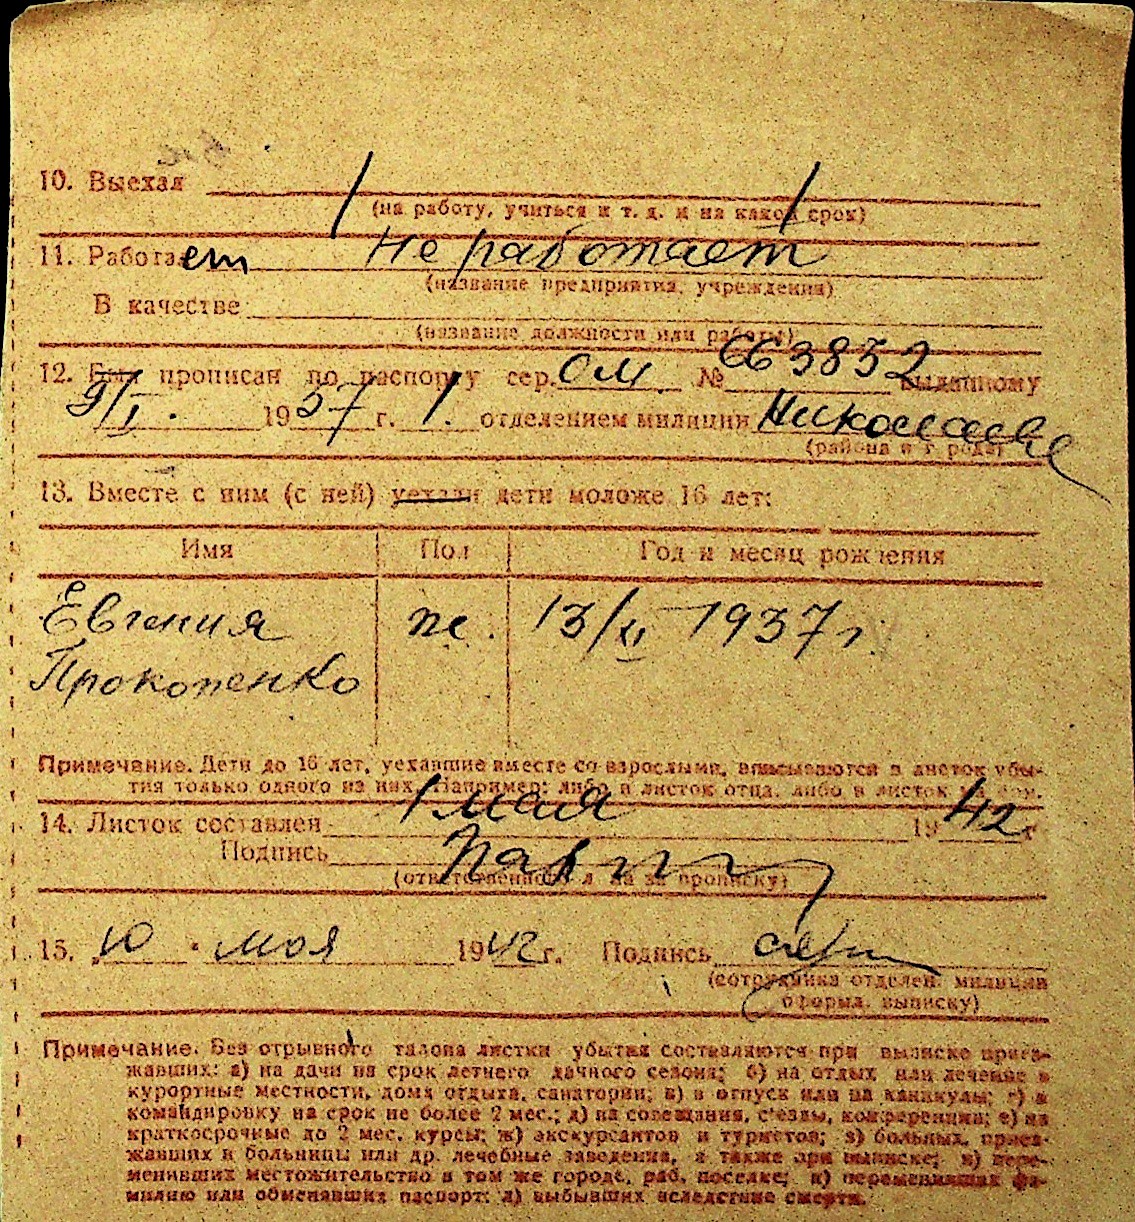 10. Выехал
(на работу, учиться и т. д. и на какой срок)
11. Работает не работает
(название предприятия, учреждения)
В качестве
(название должности или работы)
12. Был прописан по паспорту сер. ОМ № 663852 выданному
9/I. 1937 г. 1. отделением милиции Николаеве
(района и города)
13. Вместе с ним (с ней) уехали дети моложе 16 лет:
Имя Пол Год и месяц рождения
Евгения ж. 13/II 1937 г.
Прокопенко
Примечание. Дети до 16 лет, уехавшие вместе со взрослыми, вписываются в листок убы-
тия только одного из них. Например: либо в листок отца, либо в листок
14. Листок составлен 1 мая 1942 г
Подпись
(ответственного за прописку)
15. „10 " мая 1942 г. Подпись
(сотрудника отделен. милиции
оформл. выписку)
Примечание. Без отрывного талона листки убытия составляются при выписке приез-
жавших: а) на дачи на срок летнего дачного сезона; б) на отдых или лечение в
курортные местности, дома отдыха, санатории; в) в отпуск или на каникулы; г) в
командировку на срок не более 2 мес.; д) на совещания, с'езды, конференции; е) на
краткосрочные до 2 мес. курсы; ж) экскурсантов и туристов; з) больных, приез-
жавших в больницы или др. лечебные заведения, а также при выписке; и) пере-
менивших местожительство в том же городе, раб. поселке; к) переменивших фа-
милию или обменявших паспорт; л) выбывших вследствие смерти.